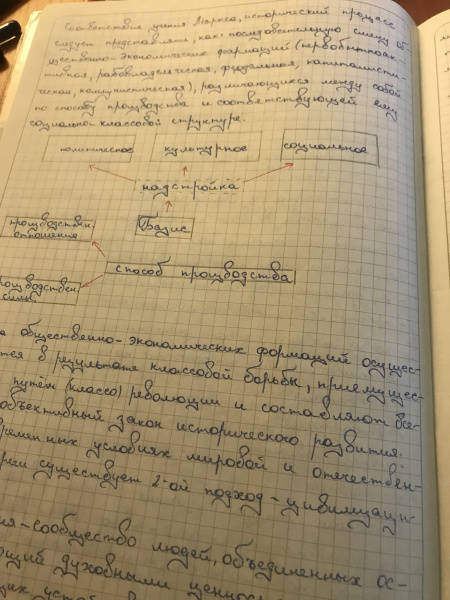 Соответствия, учения Маркса, исторический процесс
следует представлять, как: последовательную смену об-
щественно-экономических формаций (первобытнообк-
тивная, рабовладельческая, феодальная, капиталисти-
ческая, коммунистическая), различающихся между собой
по способу производства и соответствующей ему
социально-классовой структуре.
политическое культурное социальное
надстройка
производствен.
отношения
Базис
способ производства
производствен
силы
а общественно-экономических формаций осущес-
тся в результате классовой борьбы, приемущес-
путём (классо) революции и составляют все-
объективный закон исторического развития.
временных условиях мировой и отечествен-
рии существует 2-ой подход - цивилизаци-
ия-сообщество людей, объединенных ос-
ющий духовными ценнос